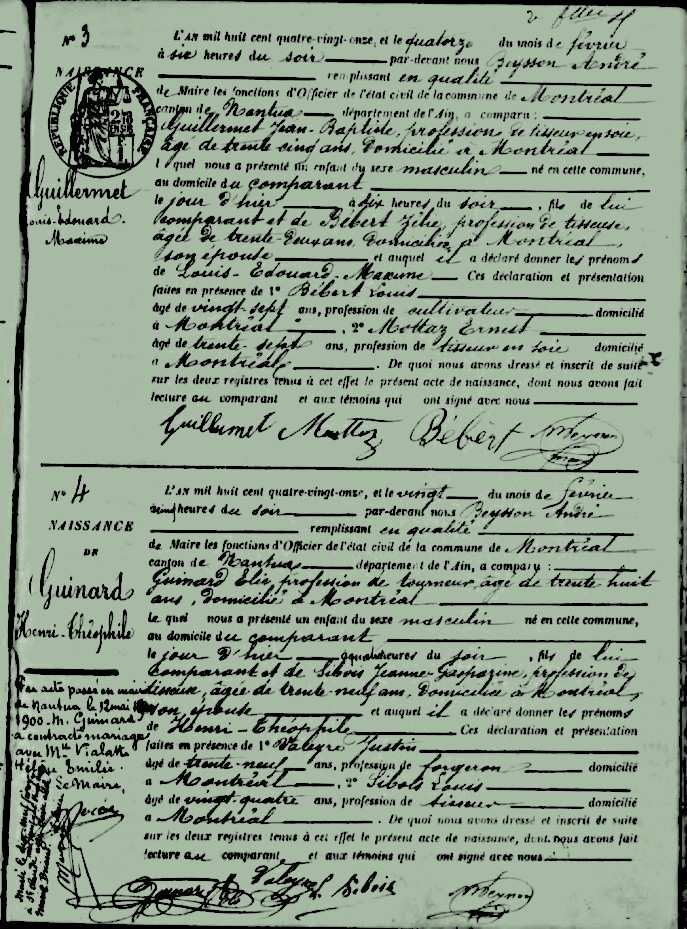 N° 3
NAISSANCE
RÉPUBLIQUE FRANÇAISE
Guillermet
Louis-Edouard
Maxime
L'AN mil huit cent quatre-vingt-onze, et le quatorze du mois de février
à six heures du soir par-devant nous Beysson André
remplissant en qualité
de Maire les fonctions d'Officier de l'état civil de la commune de Montréal
canton de Nantua département de l'Ain, a comparu :
Guillermet Jean-Baptiste, profession de tisseur en soie,
âgé de trente cinq ans, domicilié à Montréal
lequel nous a présenté un enfant du sexe masculin né en cette commune,
au domicile du comparant
le jour d'hier à six heures du soir, fils de lui
comparant et de Bébert Zélie, profession de tisseuse,
âgée de trente-deux ans, domiciliée à Montréal,
son épouse et auquel il a déclaré donner les prénoms
de Louis-Edouard-Maxime Ces déclaration et présentation
faites en présence de 1° Bébert Louis
âgé de vingt-sept ans, profession de cultivateur domicilié
à Montréal, 2° Mottaz Ernest
âgé de trente-sept ans, profession de tisseur en soie domicilié
à Montréal. De quoi nous avons dressé et inscrit de suite
sur les deux registres tenus à cet effet le présent acte de naissance, dont nous avons fait
lecture au comparant et aux témoins qui ont signé avec nous
Guillermet Mottaz Bébert
N° 4
NAISSANCE
DE
Guinard
Henri-Théophile
L'AN mil huit cent quatre-vingt-onze, et le vingt du mois de février
heures du soir par-devant nous Beysson André
remplissant en qualité
de Maire les fonctions d'Officier de l'état civil de la commune de Montréal
canton de Nantua département de l'Ain, a comparu :
Guinard Elie, profession de tourneur, âgé de trente huit
ans, domicilié à Montréal
lequel nous a présenté un enfant du sexe masculin né en cette commune,
au domicile du comparant
le jour d'hier à quatre heures du soir, fils de lui
comparant et de Sibois Jeanne-Gasparine, profession de
tisseuse, âgée de trente-neuf ans, domiciliée à Montréal
son épouse et auquel il a déclaré donner les prénoms
de Henri-Théophile Ces déclaration et présentation
faites en présence de 1° Valeyre Justin
âgé de trente-neuf ans, profession de forgeron domicilié
à Montréal, 2° Sibois Louis
âgé de vingt-quatre ans, profession de tisseur domicilié
à Montréal. De quoi nous avons dressé et inscrit de suite
sur les deux registres tenus à cet effet le présent acte de naissance, dont nous avons fait
lecture au comparant et aux témoins qui ont signé avec nous
Par acte passé en mairie
de Nantua le 12 mai
1900 M. Guinard
a contracté mariage
avec Mlle Vialatte
Emilie
Le Maire,
L. Sibois